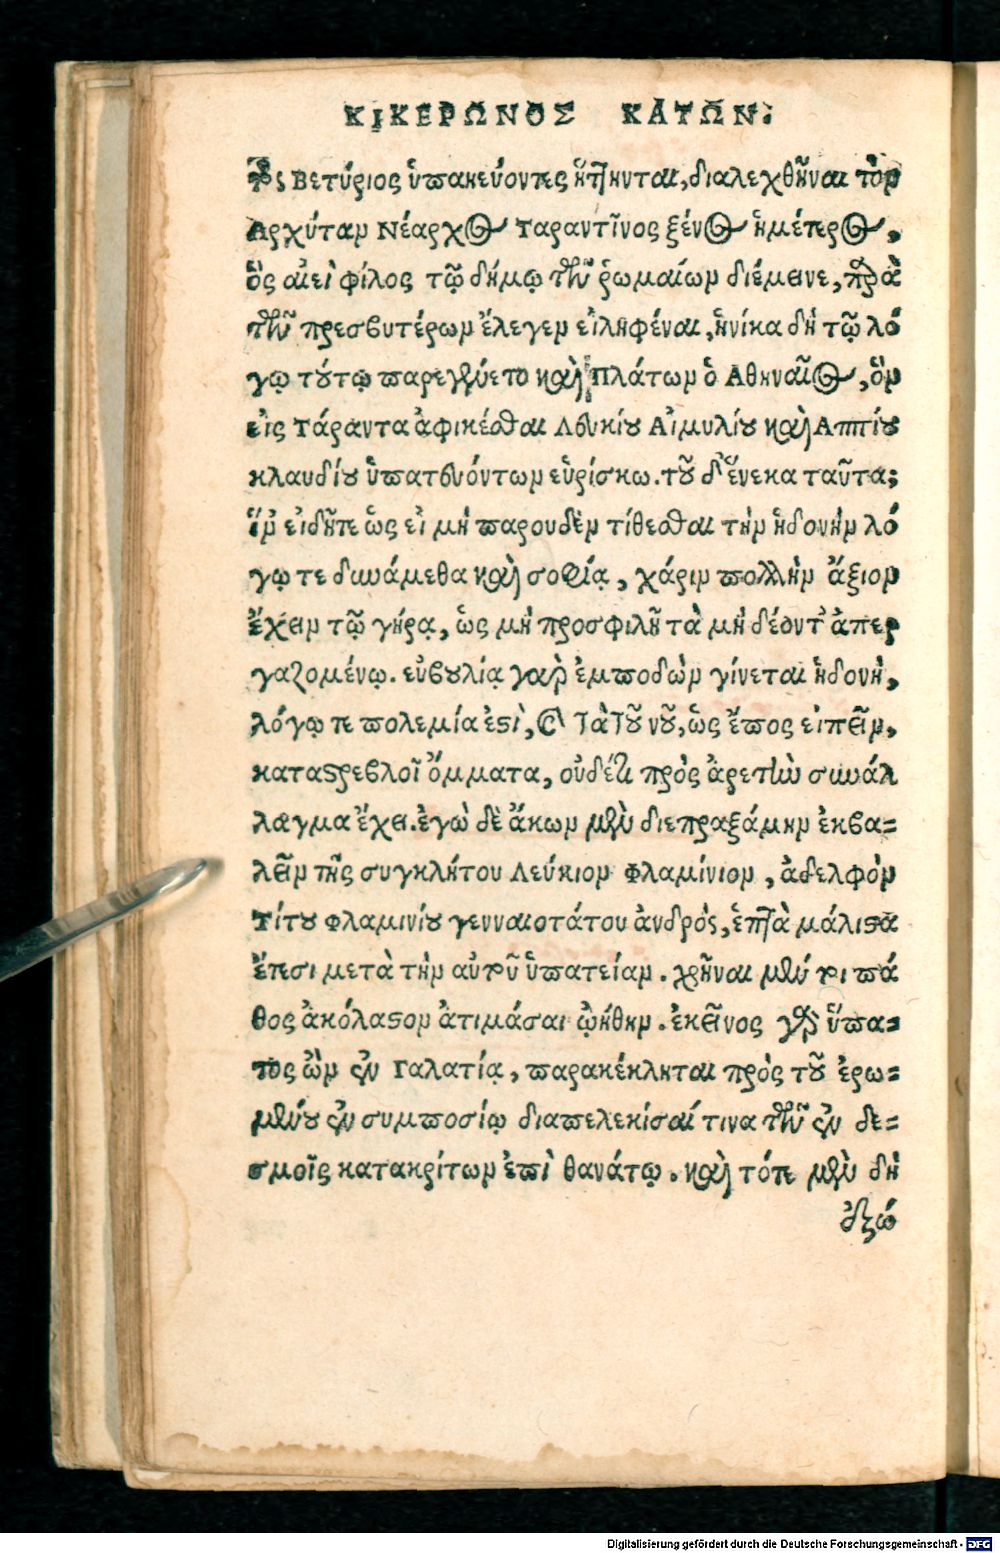 ΚΙΚΕΡΩΝΟΣ ΚΑΤΩΝ.
Τος Βετύριος ὑπατεύοντες ἥττηνται, διαλεχθῆναι τὸν
Αρχύταν Νέαρχος Ταραντῖνος ξένος ἡμέτερος,
ὃς αἰεὶ φίλος τῷ δήμῳ τῶν ῥωμαίων διέμεινε, παρὰ
τῶν πρεσβυτέρων ἔλεγεν εἰληφέναι, ἡνίκα δὴ τῷ λό
γῳ τούτῳ παρεγένετο καὶ Πλάτων ὁ Αθηναῖος, ὃν
εἰς Τάραντα ἀφικέσθαι Λευκίου Αἰμυλίου καὶ Αππίου
κλαυδίου ὑπατευόντων εὑρίσκω. τοῦ δ' ἕνεκα ταῦτα;
ἵν' εἰδῆτε ὡς εἰ μὴ παρουδὲν τίθεσθαι τὴν ἡδονὴν λό
γῳ τε δυνάμεθα καὶ σοφίᾳ, χάριν πολλὴν ἄξιον
ἔχειν τῷ γήρᾳ, ὡς μὴ προσφιλῆ τὰ μὴ δέοντ' ἀπερ
γαζομένῳ. εὐβουλίᾳ γὰρ ἐμποδὼν γίνεται ἡδονὴ,
λόγῳ τε πολεμία ἐστὶ, καὶ τὰ τοῦ νοῦ, ὡς ἔπος εἰπεῖν,
καταστρεβλοῖ ὄμματα, οὐδέ τι πρὸς ἀρετὴν συνάλ
λαγμα ἔχει. ἐγὼ δὲ ἄκων μὲν διεπραξάμην ἐκβα=
λεῖν τῆς συγκλήτου Λεύκιον Φλαμίνιον, ἀδελφὸν
Τίτου Φλαμινίου γενναιοτάτου ἀνδρὸς, ἑπτὰ μάλιστα
ἔτεσι μετὰ τὴν αὐτοῦ ὑπατείαν. χρῆναι μέν τοι πά
θος ἀκόλαστον ἀτιμάσαι ᾠήθην. ἐκεῖνος γὰρ ὕπα=
τος ὢν ἐν Γαλατίᾳ, παρακέκληται πρὸς τοῦ ἐρω=
μένου ἐν συμποσίῳ διαπελεκίσαί τινα τῶν ἐν δε=
σμοῖς κατακρίτων ἐπὶ θανάτῳ. καὶ τότε μὲν δὴ
ἐξώ
Digitalisierung gefördert durch die Deutsche Forschungsgemeinschaft - DFG